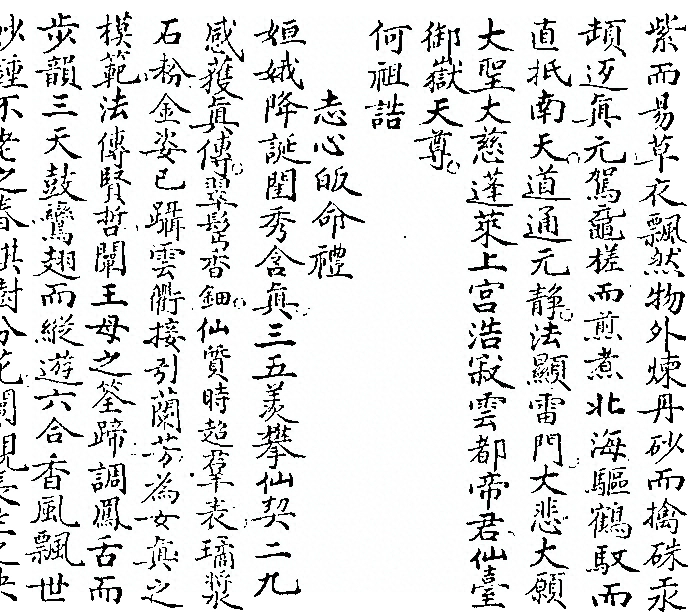 紫而易草衣飄然物外煉丹砂而擒硃汞
頡迓眞元駕黿槎而煎煮北海驅鶴馭而
直抵南天道通元靜法顯雷門大悲大願
大聖大慈蓬萊上宮浩寂雲都帝君仙臺
御嶽天尊
何祖誥
志心皈命禮
姮娥降誕閨秀含眞三五羨攀仙契二九
感蒦眞傳翠髻香鈿仙質時超羣表璚漿
石粉金姿已躡雲衢接引蘭芬為女眞之
模範法傳賢哲闡王母之筌蹄調鳳舌而
步韻三天鼓鸞翅而縱遊六合香風飄世
不老之春